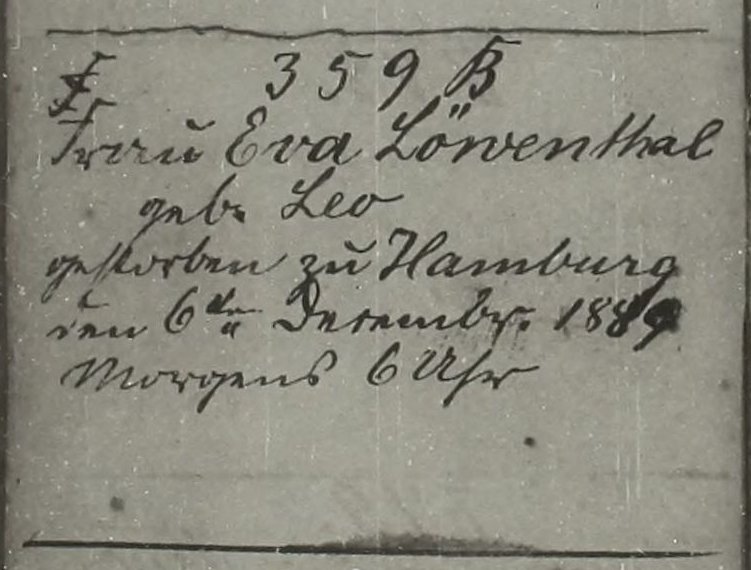 359 B
Frau Eva Löwenthal
geb. Leo
gestorben zu Hamburg
den 6ten Decembr. 1889
Morgens 6 Uhr